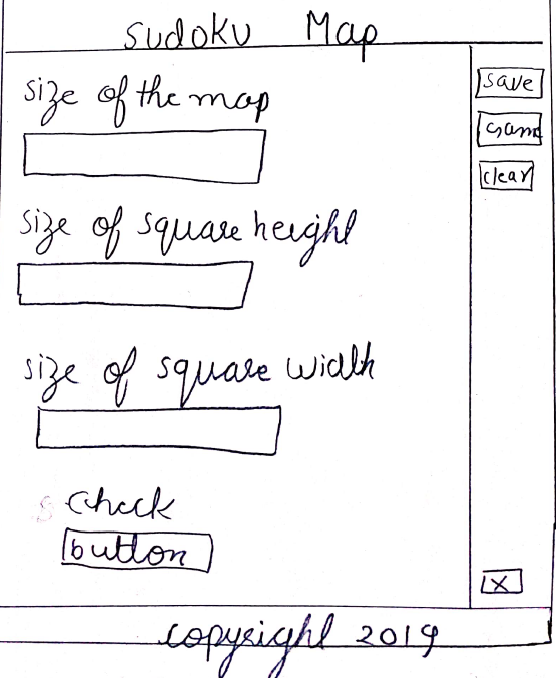 Sudoku Map
size of the map
size of square height
size of square width
check
button
save
Game
clear
X
copyright 2019